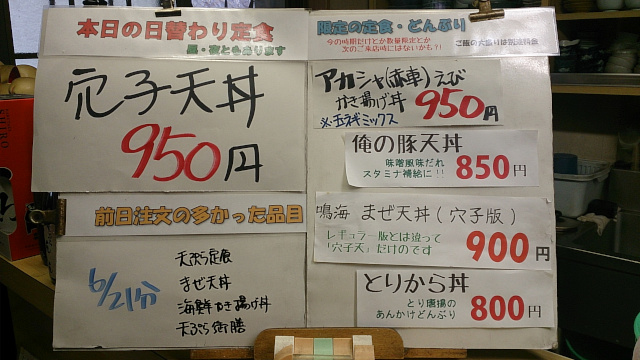 本日の日替わり定食
昼・夜ともあります
穴子天丼
950円
前日注文の多かった品目
6/21分
天ぷら定食
まぜ天丼
海鮮かき揚げ丼
限定の定食・どんぶり
今の時期だけとか数量限定とか
次のご来店時にはないかも?!
ご飯の大盛り は別途料金
アカシャ(赤車)えび
かき揚げ丼 950円
※玉ネギミックス
俺の豚天丼
味噌風味だれ
スタミナ補給に!! 850円
鳴海 まぜ天丼(穴子版)
レギュラー版とは違って
「穴子天」だけのです 900円
とりから丼
とり唐揚の
あんかけどんぶり 800円